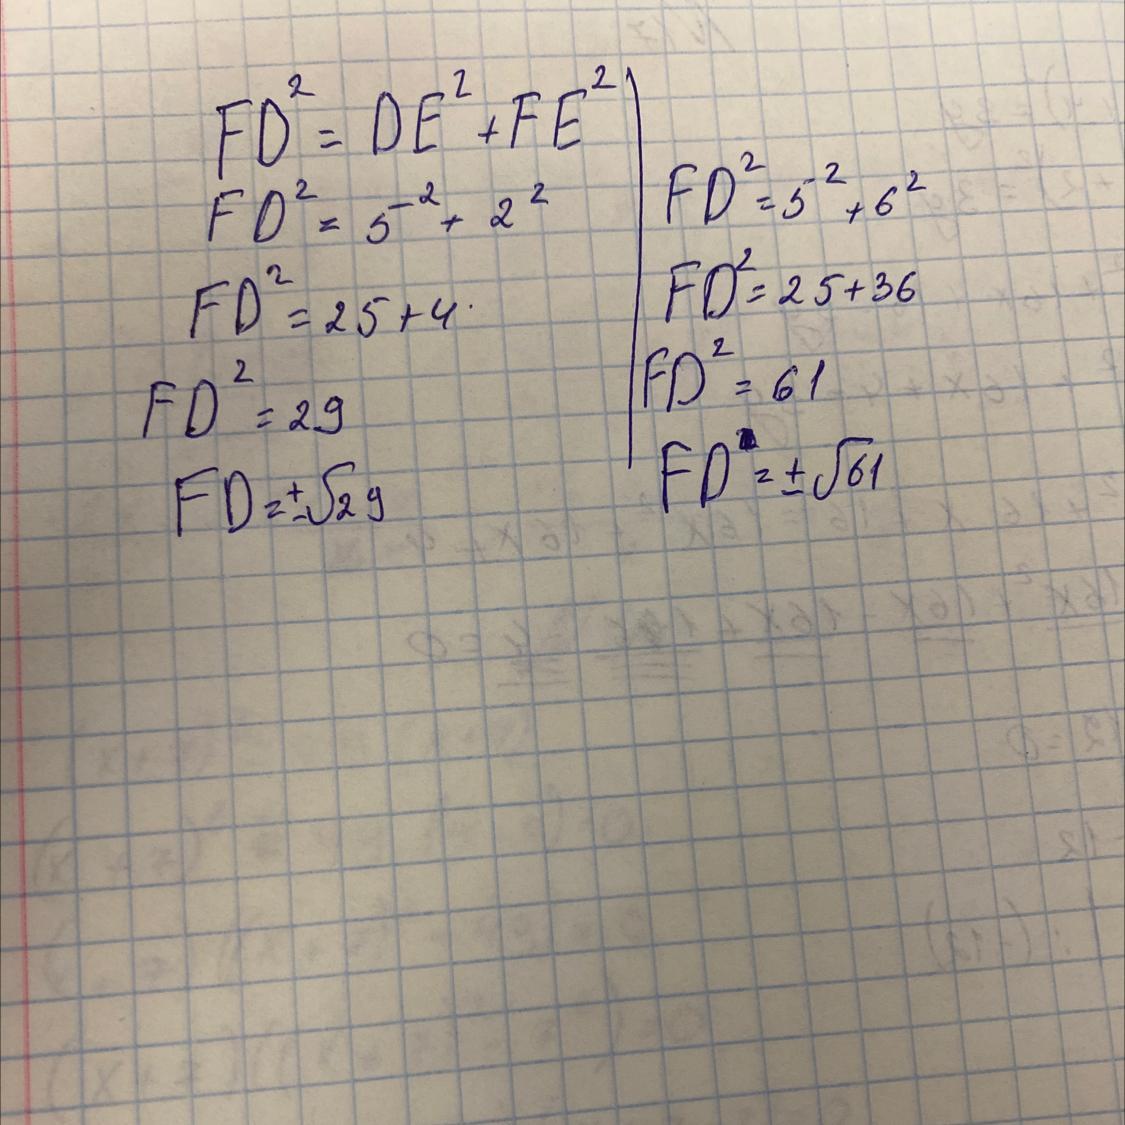 FD² = DE² + FE²
FD² = 5² + 2²
FD² = 25 + 4
FD² = 29
FD = ±√29
FD² = 5² + 6²
FD² = 25 + 36
FD² = 61
FD = ±√61